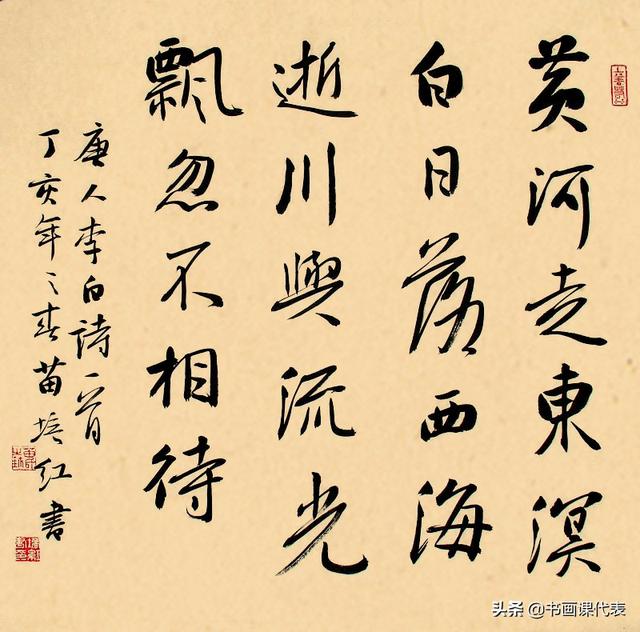 黄河走東溟
白日落西海
逝川與流光
飄忽不相待
唐人李白詩一首
丁亥年之春苗培红書
头条@书画课代表